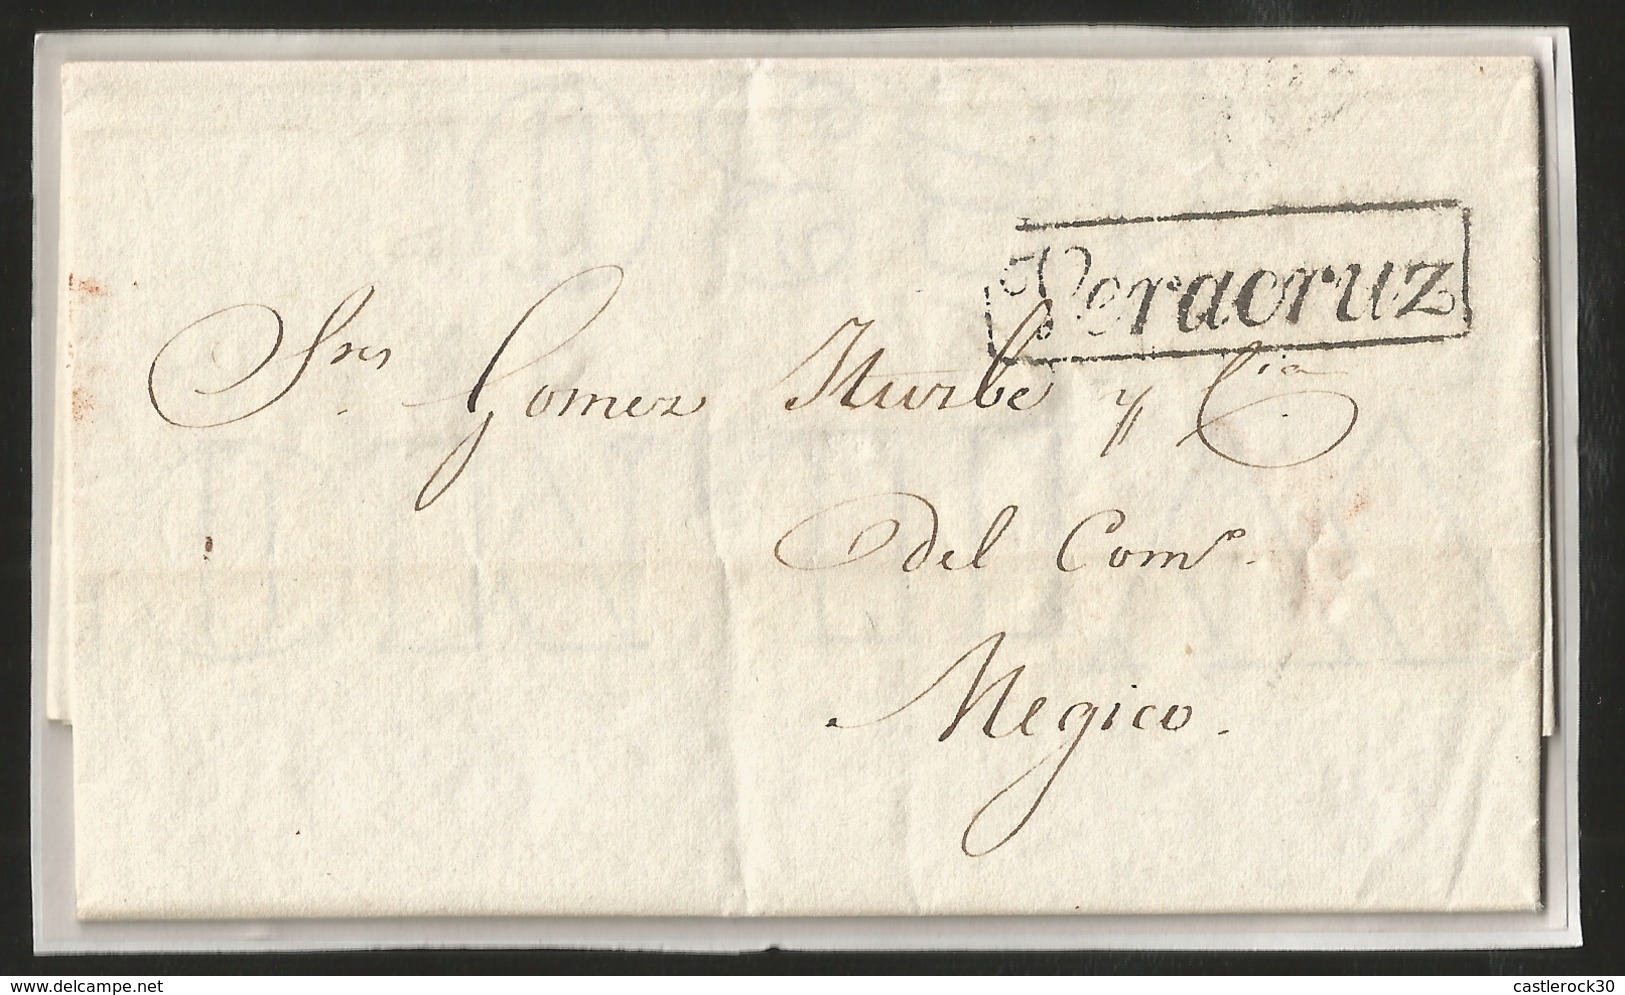 Veracruz
Sres Gomez Yturbe y Cia
del Como.
Megico.
www.delcampe.net
castlerock30